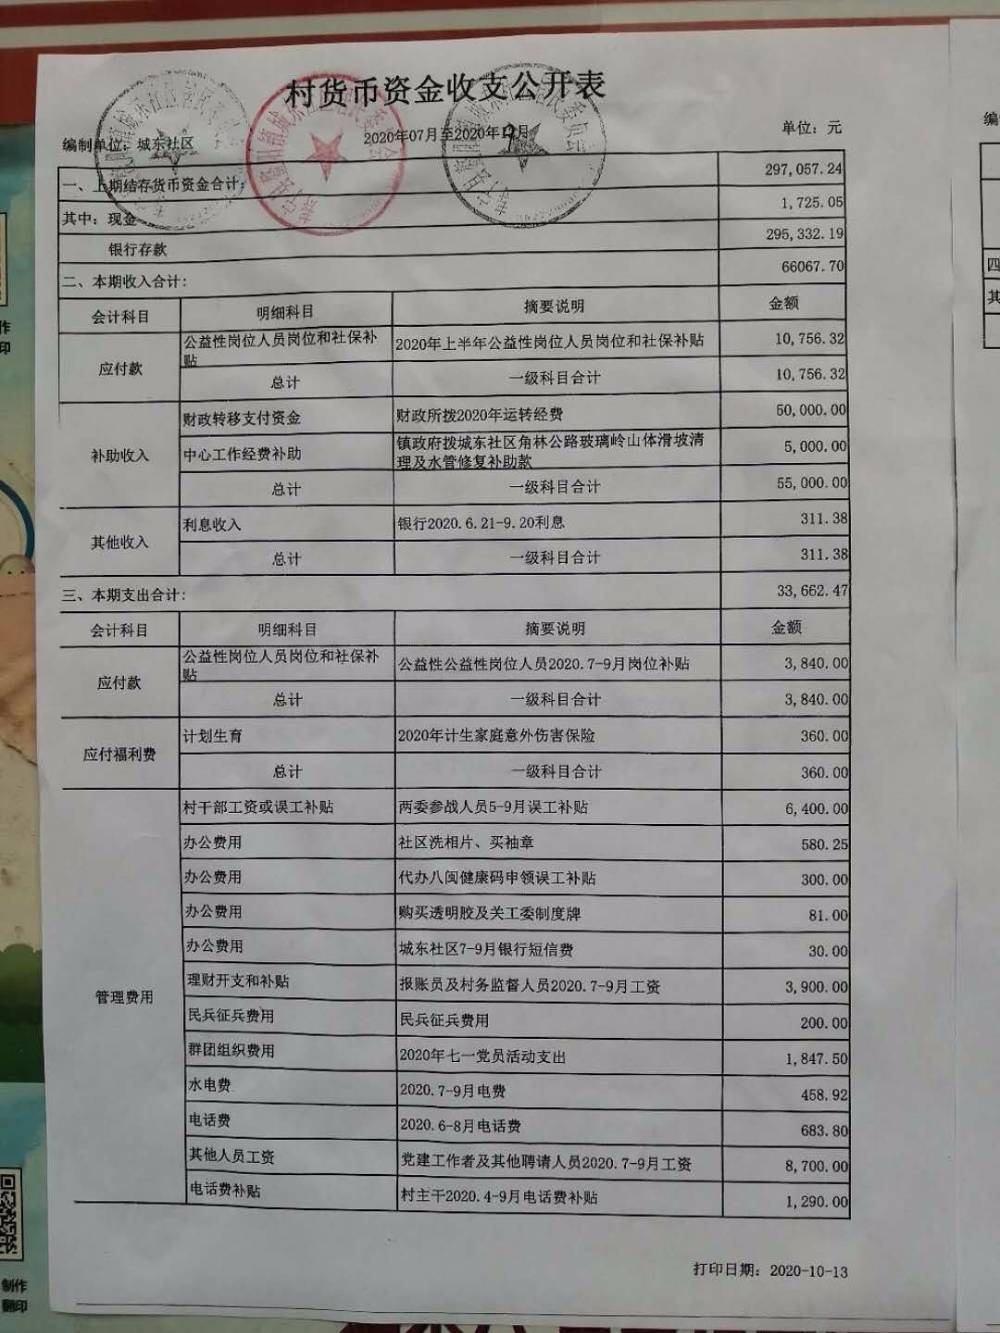 村货币资金收支公开表
编制单位: 城东社区
2020年07月至2020年12月
单位: 元
一、上期结存货币资金合计: 297,057.24
其中: 现金 1,725.05
银行存款 295,332.19
二、本期收入合计: 66067.70
会计科目 明细科目 摘要说明 金额
应付款 公益性岗位人员岗位和社保补贴 2020年上半年公益性岗位人员岗位和社保补贴 10,756.32
总计 一级科目合计 10,756.32
补助收入 财政转移支付资金 财政所拨2020年运转经费 50,000.00
中心工作经费补助 镇政府拨城东社区角林公路玻璃岭山体滑坡清理及水管修复补助款 5,000.00
总计 一级科目合计 55,000.00
其他收入 利息收入 银行2020.6.21-9.20利息 311.38
总计 一级科目合计 311.38
三、本期支出合计: 33,662.47
会计科目 明细科目 摘要说明 金额
应付款 公益性岗位人员岗位和社保补贴 公益性公益性岗位人员2020.7-9月岗位补贴 3,840.00
总计 一级科目合计 3,840.00
应付福利费 计划生育 2020年计生家庭意外伤害保险 360.00
总计 一级科目合计 360.00
管理费用 村干部工资或误工补贴 两委参战人员5-9月误工补贴 6,400.00
办公费用 社区洗相片、买袖章 580.25
办公费用 代办八闽健康码申领误工补贴 300.00
办公费用 购买透明胶及关工委制度牌 81.00
办公费用 城东社区7-9月银行短信费 30.00
理财开支和补贴 报账员及村务监督人员2020.7-9月工资 3,900.00
民兵征兵费用 民兵征兵费用 200.00
群团组织费用 2020年七一党员活动支出 1,847.50
水电费 2020.7-9月电费 458.92
电话费 2020.6-8月电话费 683.80
其他人员工资 党建工作者及其他聘请人员2020.7-9月工资 8,700.00
电话费补贴 村主干2020.4-9月电话费补贴 1,290.00
打印日期: 2020-10-13
制作
翻印
作
印
编
四
其